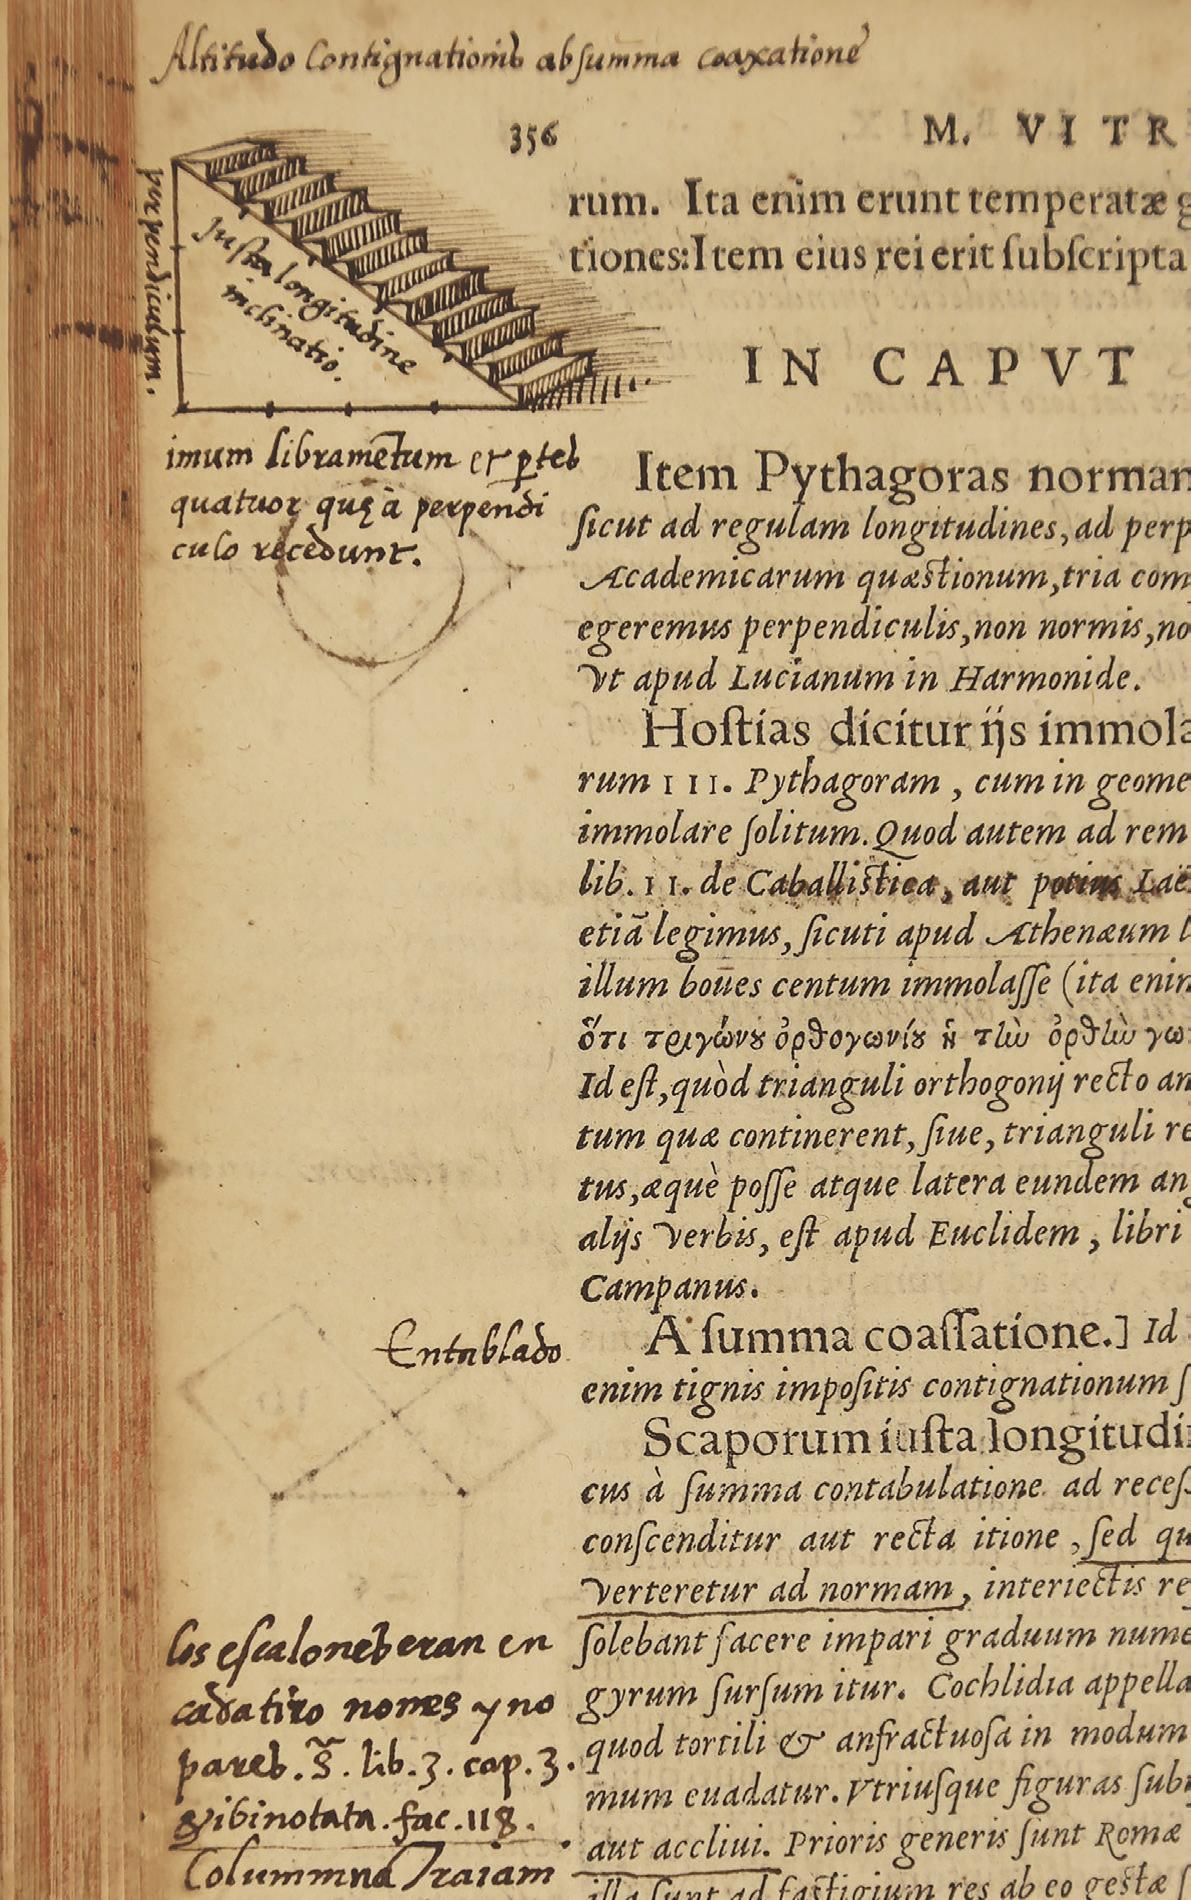 Altitudo Contignationis ab summa coaxatione
356
M. VITR
perpendiculum.
Iusta longitudine
inclinatio.
imum librametum et ptes
quatuor quę à perpendi
culo recedunt.
rum. Ita enim erunt temperatæ g
tiones: Item eius rei erit subscripta
IN CAPVT
Item Pythagoras norman
sicut ad regulam longitudines, ad perp
Academicarum quæstionum, tria com
egeremus perpendiculis, non normis, no
Vt apud Lucianum in Harmonide.
Hostias dicitur ijs immola
rum III. Pythagoram, cum in geome
immolare solitum. Quod autem ad rem
lib. II. de Caballistica, aut potius Laë
etiã legimus, sicuti apud Athenæum l
illum boues centum immolasse (ita enim
ὅτι τριγώνου ὀρθογωνίου ἡ τὴν ὀρθὴν γω
Id est, quòd trianguli orthogonij recto an
tum quæ continerent, siue, trianguli re
tus, æquè posse atque latera eundem ang
alijs verbis, est apud Euclidem, libri
Campanus.
A summa coassatione.] Id
Entablado
enim tignis impositis contignationum s
Scaporum iusta longitudi
cus à summa contabulatione ad recess
conscenditur aut recta itione, sed qu
verteretur ad normam, interiectis re
solebant facere impari graduum nume
gyrum sursum itur. Cochlidia appella
quod tortili & anfractuosa in modum
mum euadatur. Vtriusque figuras subi
aut accliui. Prioris generis sunt Romæ
illa sunt ad fastigium res ab eo gestæ s
los escalones eran en
cada tiro nones y no
pares. S̃. lib. 3. cap. 3.
& ibi notata. fac. 118.
Colummna Traiam